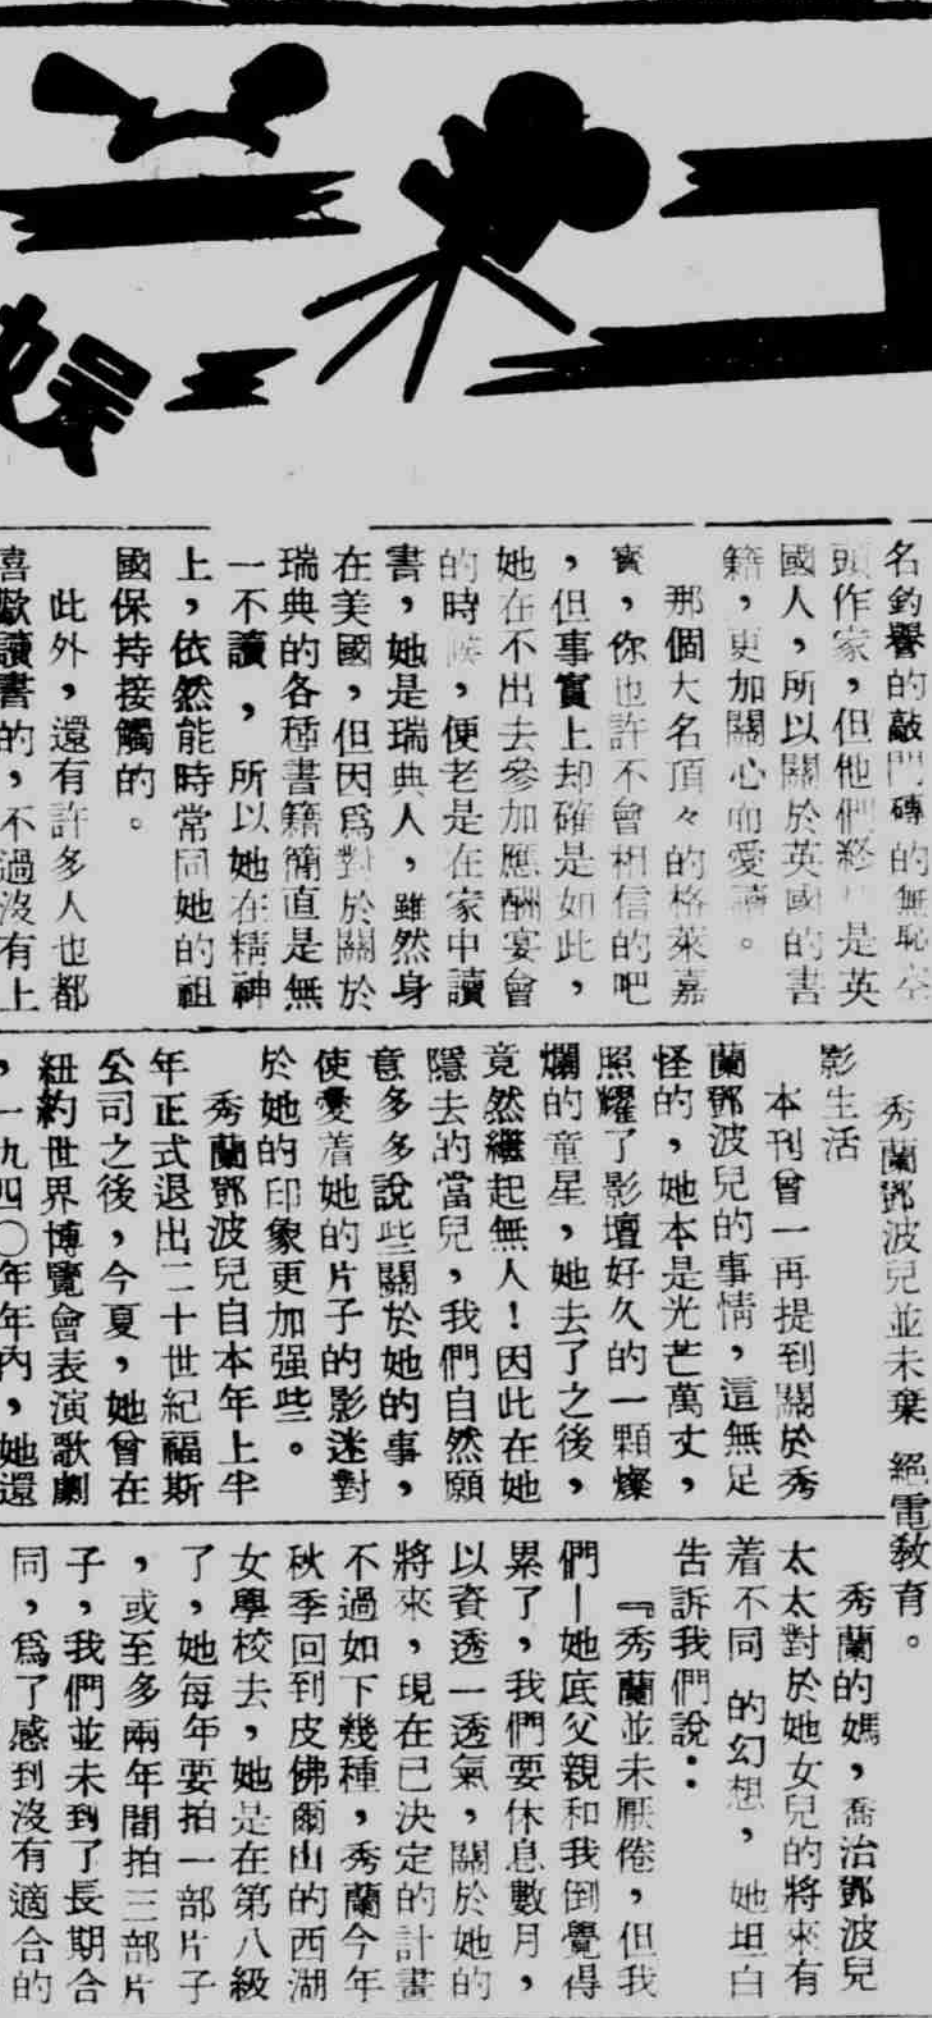 名釣譽的敲門磚的無恥空
頭作家,但他們終是英
國人,所以關於英國的書
籍,更加關心而愛讀。
那個大名頂々的格萊嘉
寳,你也許不會相信的吧
,但事實上却確是如此,
她在不出去參加應酬宴會
的時候,便老是在家中讀
書,她是瑞典人,雖然身
在美國,但因爲對於關於
瑞典的各種書籍簡直是無
一不讀,所以她在精神
上,依然能時常同她的祖
國保持接觸的。
此外,還有許多人也都
喜歡讀書的,不過沒有上
秀蘭鄧波兒並未棄絕電
影生活
本刊曾一再提到關於秀
蘭鄧波兒的事情,這無足
怪的,她本是光芒萬丈,
照耀了影壇好久的一顆燦
爛的童星,她去了之後,
竟然繼起無人!因此在她
隱去的當兒,我們自然願
意多多說些關於她的事,
使愛着她的片子的影迷對
於她的印象更加强些。
秀蘭鄧波兒自本年上半
年正式退出二十世紀福斯
公司之後,今夏,她曾在
紐約世界博覽會表演歌劇
,一九四〇年年內,她還
教育。
秀蘭的媽,喬治鄧波兒
太太對於她女兒的將來有
着不同的幻想,她坦白
告訴我們說:
『秀蘭並未厭倦,但我
們—她底父親和我倒覺得
累了,我們要休息數月,
以資透一透氣,關於她的
將來,現在已決定的計畫
不過如下幾種,秀蘭今年
秋季回到皮佛爾山的西湖
女學校去,她是在第八級
了,她每年要拍一部片子
,或至多兩年間拍三部片
子,我們並未到了長期合
同,爲了感到沒有適合的